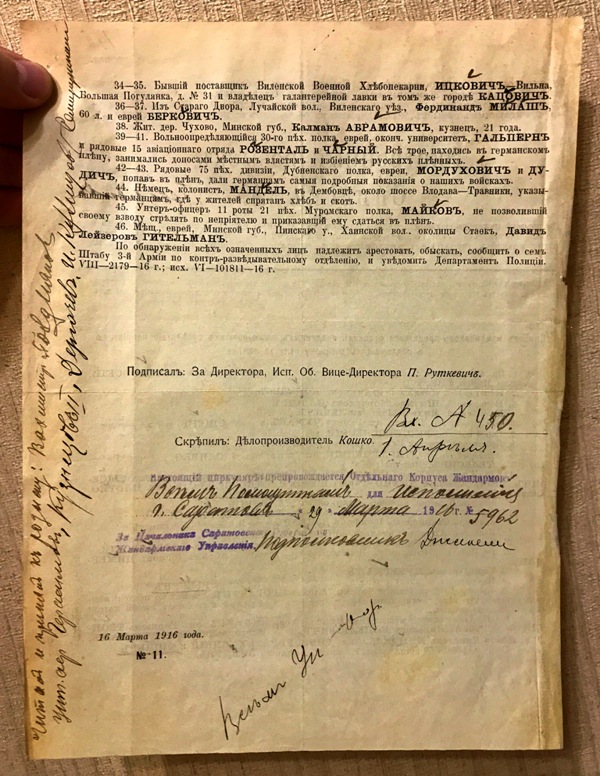 34—35. Бывшій поставщикъ Виленской Военной Хлѣбопекарни, ИЦКОВИЧЪ—Вильна,
Большая Погулянка, д. № 31 и владѣлецъ галантерейной лавки въ томъ же городѣ КАЦОВИЧЪ.
36—37. Изъ Стараго Двора, Лучайской вол., Виленскаго уѣз., Фердинандъ МИЛАШЪ,
60 л. и еврей БЕРКОВИЧЪ.
38. Жит. дер. Чухово, Минской губ., Калманъ АБРАМОВИЧЪ, кузнецъ, 21 года.
39—41. Вольноопредѣляющійся 30-го пѣх. полка, еврей, оконч. университетъ, ГАЛЬПЕРНЪ
и рядовые 15 авіаціоннаго отряда РОЗЕНТАЛЬ и ЧАРНЫЙ. Всѣ трое, находясь въ германскомъ
плѣну, занимались доносами мѣстнымъ властямъ и избіеніемъ русскихъ плѣнныхъ.
42—43. Рядовые 75 пѣх. дивизіи, Дубненскаго полка, евреи, МОРДУХОВИЧЪ и ДУ-
ДИЧЪ, попавъ въ плѣнъ, дали германцамъ самыя подробныя показанія о нашихъ войскахъ.
44. Нѣмец, колонистъ, МАНДЕЛЬ, въ Дембовцѣ, около шоссе Влодава—Травники, указы-
вавшій германцамъ, гдѣ у жителей спрятанъ хлѣбъ и скотъ.
45. Унтеръ-офицеръ 11 роты 21 пѣх. Муромскаго полка, МАЙКОВЪ, не позволившій
своему взводу стрѣлять по непріятелю и приказавшій ему сдаться въ плѣнъ.
46. Мѣщ., еврей, Минской губ., Пинскаго у., Хаинской вол., околицы Стаекъ, Давидъ
Лейзеровъ ГИТЕЛЬМАНЪ.
По обнаруженіи всѣхъ означенныхъ лицъ надлежитъ арестовать, обыскать, сообщить о семъ
Штабу 3-й Арміи по контръ-развѣдывательному отдѣленію, и увѣдомить Департаментъ Полиціи.
VIII—2179—16 г.; исх. VI—101811—16 г.
Подписалъ: За Директора, Исп. Об. Вице-Директора П. Руткевичъ.
Вх. № 450.
Скрѣпилъ: Дѣлопроизводитель Кошко.
1. Апрѣля.
Настоящій циркуляръ препровождается Отдѣльнаго Корпуса Жандармовъ
для исполненія
г. Саратовъ „29” Марта 1916 г. № 5962
За Начальника Саратовскаго
Жандармскаго Управленія, Подполковникъ
16 Марта 1916 года.
№ 11.
Читалъ и принялъ къ розыску: